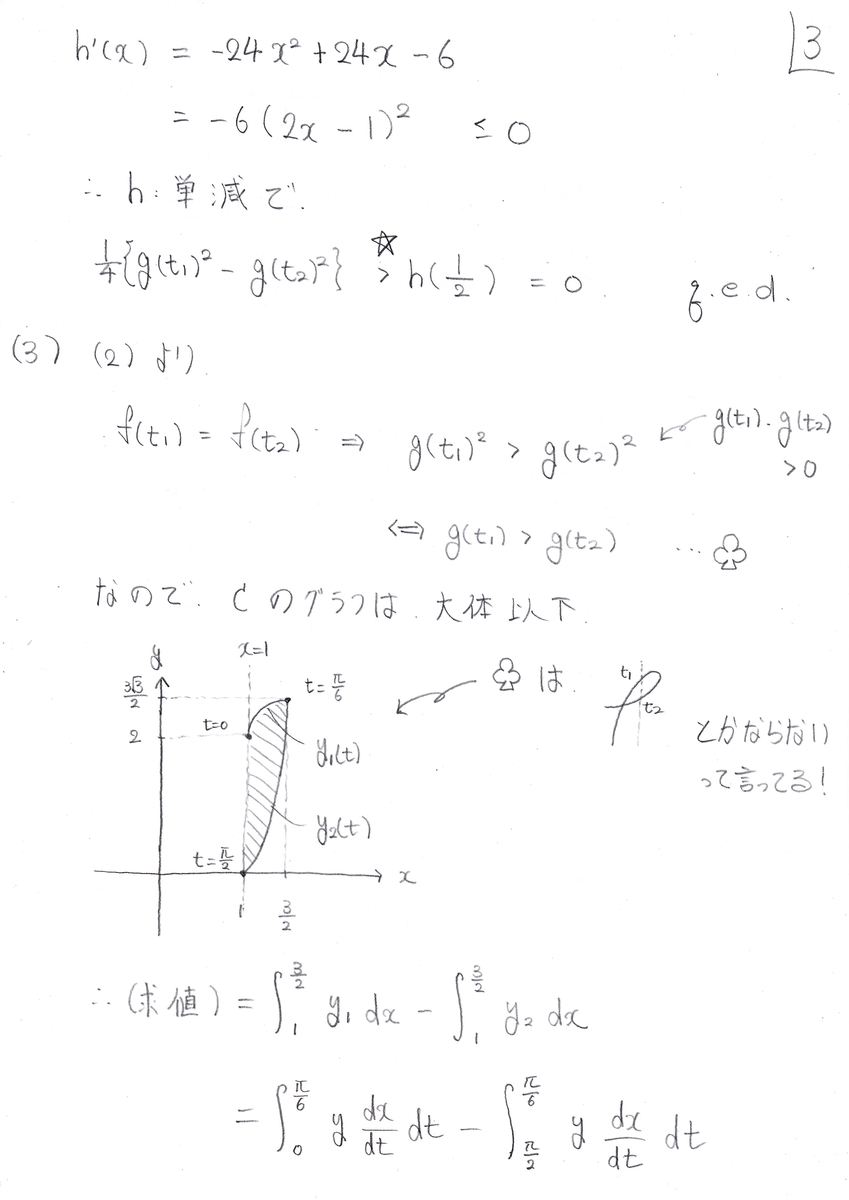 3
h'(x) = -24x² + 24x - 6
= -6(2x - 1)² ≤ 0
∴ h: 単減で.
1/4{g(t₁)² - g(t₂)²} >☆ h(1/2) = 0. q.e.d.
(3) (2)より
f(t₁) = f(t₂) ⇒ g(t₁)² > g(t₂)² ↙ g(t₁).g(t₂) > 0
⇔ g(t₁) > g(t₂) … ♧
なので. Cのグラフは. 大体以下.
y
x=1
3√3/2
t=π/6
2
t=0
y₁(t)
y₂(t)
t=π/2
x
1
3/2
♧は.
t₁
t₂
とかならない
って言ってる!
∴ (求値) = ∫₁^(3/2) y₁ dx - ∫₁^(3/2) y₂ dx
= ∫₀^(π/6) y dx/dt dt - ∫_(π/2)^(π/6) y dx/dt dt